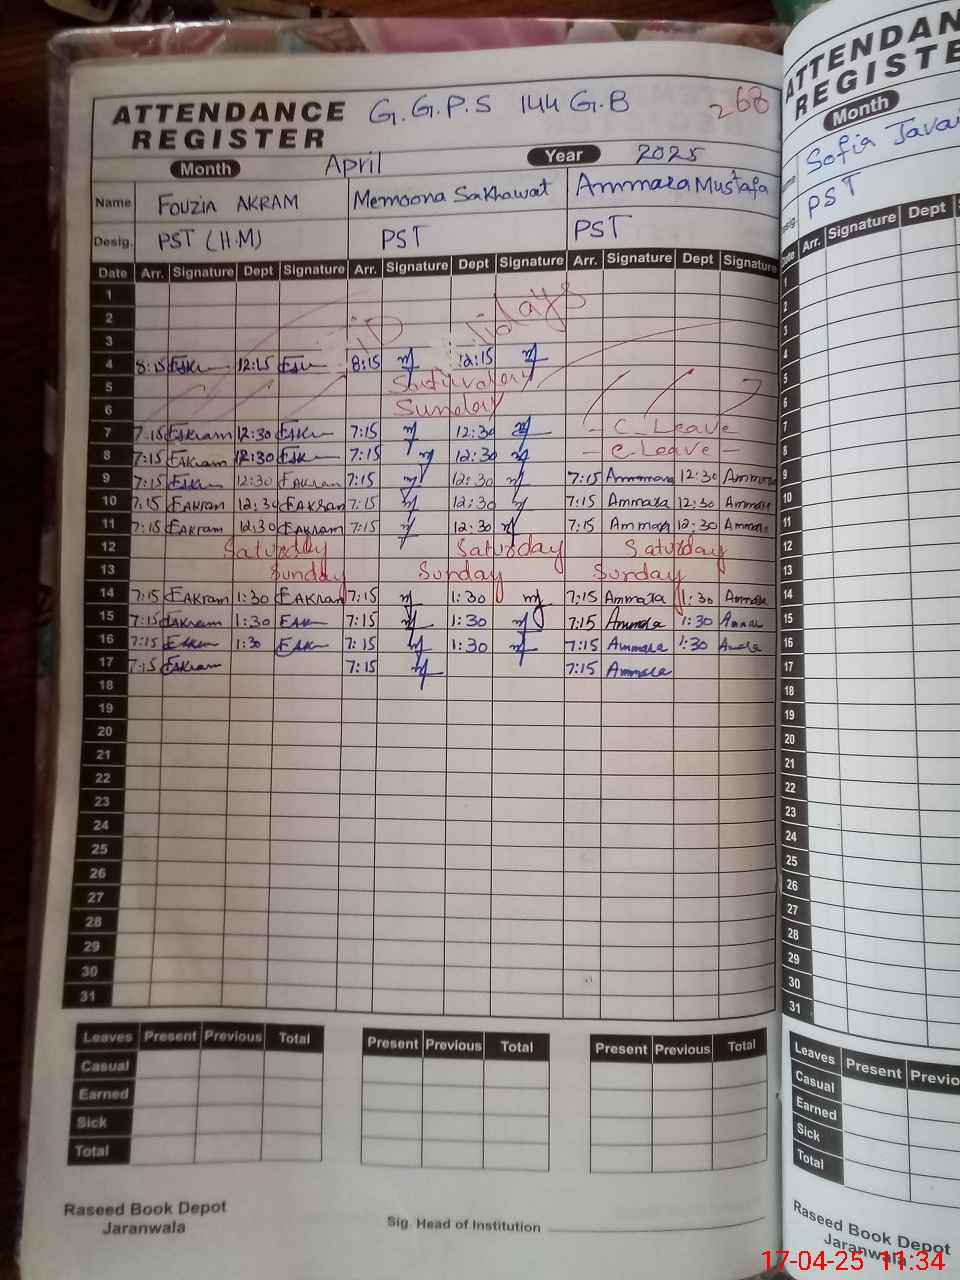 ATTENDANCE REGISTER G.G.P.S 144 G.B 268
Month April Year 2025
Name Fouzia AKRAM Memoona Sakhawat Ammara Mustafa
Desig. PST (H.M) PST PST
Date Arr. Signature Dept Signature Arr. Signature Dept Signature Arr. Signature Dept Signature
1
2
3
4 8:15 12:15 8:15 12:15
5 Saturday
6 Sunday
7 7:15 EAkram 12:30 7:15 12:30 - C. Leave
8 7:15 EAkram 12:30 7:15 12:30 - C. Leave -
9 7:15 12:30 EAkram 7:15 12:30 7:15 Ammara 12:30 Ammara
10 7:15 EAkram 12:30 EAkram 7:15 12:30 7:15 Ammara 12:30 Ammara
11 7:15 EAkram 12:30 EAkram 7:15 12:30 7:15 Ammara 12:30 Ammara
12 Saturday Saturday Saturday
13 Sunday Sunday Sunday
14 7:15 EAkram 1:30 EAkram 7:15 1:30 7:15 Ammara 1:30 Ammara
15 7:15 EAkram 1:30 7:15 1:30 7:15 Ammara 1:30
16 7:15 1:30 7:15 1:30 7:15 Ammara 1:30
17 7:15 EAkram 7:15 7:15 Ammara
18
19
20
21
22
23
24
25
26
27
28
29
30
31
Leaves Present Previous Total Present Previous Total Present Previous Total
Casual
Earned
Sick
Total
Raseed Book Depot
Jaranwala
Sig. Head of Institution
ATTENDAN
REGISTE
Month
Sofia Javai
PST
Arr. Signature Dept
1
2
3
4
5
6
7
8
9
10
11
12
13
14
15
16
17
18
19
20
21
22
23
24
25
26
27
28
29
30
31
Leaves Present Previo
Casual
Earned
Sick
Total
Raseed Book Depot
Jaranwala
17-04-25 11:34